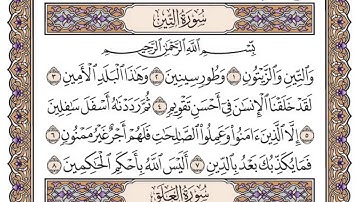 سُورَةُ التِّينِ
بِسْمِ ٱللَّهِ ٱلرَّحْمَٰنِ ٱلرَّحِيمِ
وَٱلتِّينِ وَٱلزَّيْتُونِ ١ وَطُورِ سِينِينَ ٢ وَهَٰذَا ٱلْبَلَدِ ٱلْأَمِينِ ٣
لَقَدْ خَلَقْنَا ٱلْإِنسَٰنَ فِىٓ أَحْسَنِ تَقْوِيمٍ ٤ ثُمَّ رَدَدْنَٰهُ أَسْفَلَ سَٰفِلِينَ ٥
إِلَّا ٱلَّذِينَ ءَامَنُوا۟ وَعَمِلُوا۟ ٱلصَّٰلِحَٰتِ فَلَهُمْ أَجْرٌ غَيْرُ مَمْنُونٍ ٦
فَمَا يُكَذِّبُكَ بَعْدُ بِٱلدِّينِ ٧ أَلَيْسَ ٱللَّهُ بِأَحْكَمِ ٱلْحَٰكِمِينَ ٨
سُورَةُ العَلَقِ